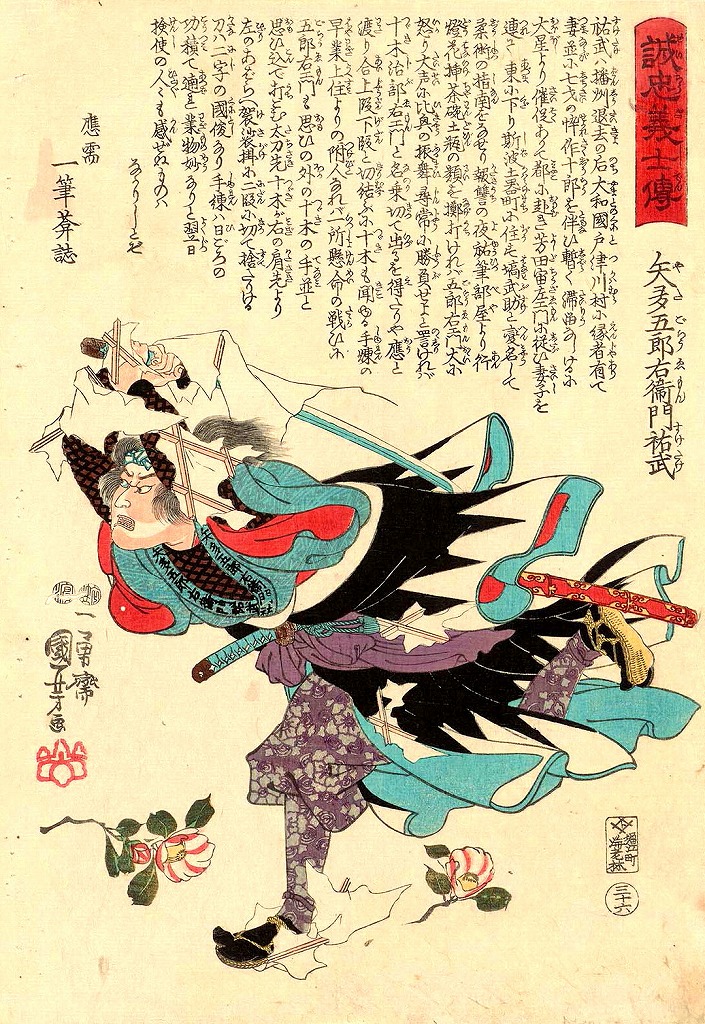 誠忠義士傳
矢多五郎右衛門祐武
祐武ハ播洲退去の后大和國戸津川村に縁者有て
妻并に七才の悴作十郎を伴ひ暫く滞畄ありけるに
大星より催促ありて都に赴き芳田宙左エ門に従ひ妻子を
連て東に下り斯波土器町に住す塙武助と変名して
柔術の指南をなせり報讐の夜敵筆部屋より行
燈花挿茶碗土瓶の類を擲打けれバ五郎右エ門大に
怒り大声に比興の振舞尋常に勝負せよと罵けれバ
十木治部右エ門と名乗切て出るを得たりや應と
渡り合上段下段と切結ぶに十木も聞ゆる手煉の
早業上位よりの附人なれバ一所懸命の戦ひに
五郎右エ門も思ひの外の十木の手並と
思ひ込で打こむ太刀先十木が右の肩先より
左のあばらへ袈裟掛に二段に切て捨たりける
刀ハ二字の國俊なり手煉ハ日ごろの
功積て適れ業物妙なりと翌日
検使の人々も感ぜぬものハ
なかりしとぞ
應需
一筆葊誌
一勇齋
國芳画
海老林
三十六